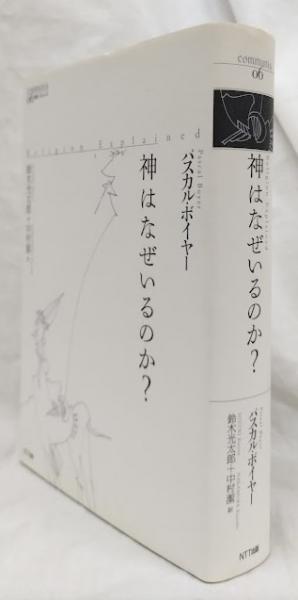 Religion Explained
Pascal Boyer
パスカル・ボイヤー
神はなぜいるのか?
鈴木光太郎+中村潔=訳
NTT出版
communis
06
Religion Explained
神はなぜいるのか?
Pascal Boyer
パスカル・ボイヤー
鈴木光太郎+中村潔 訳
NTT出版